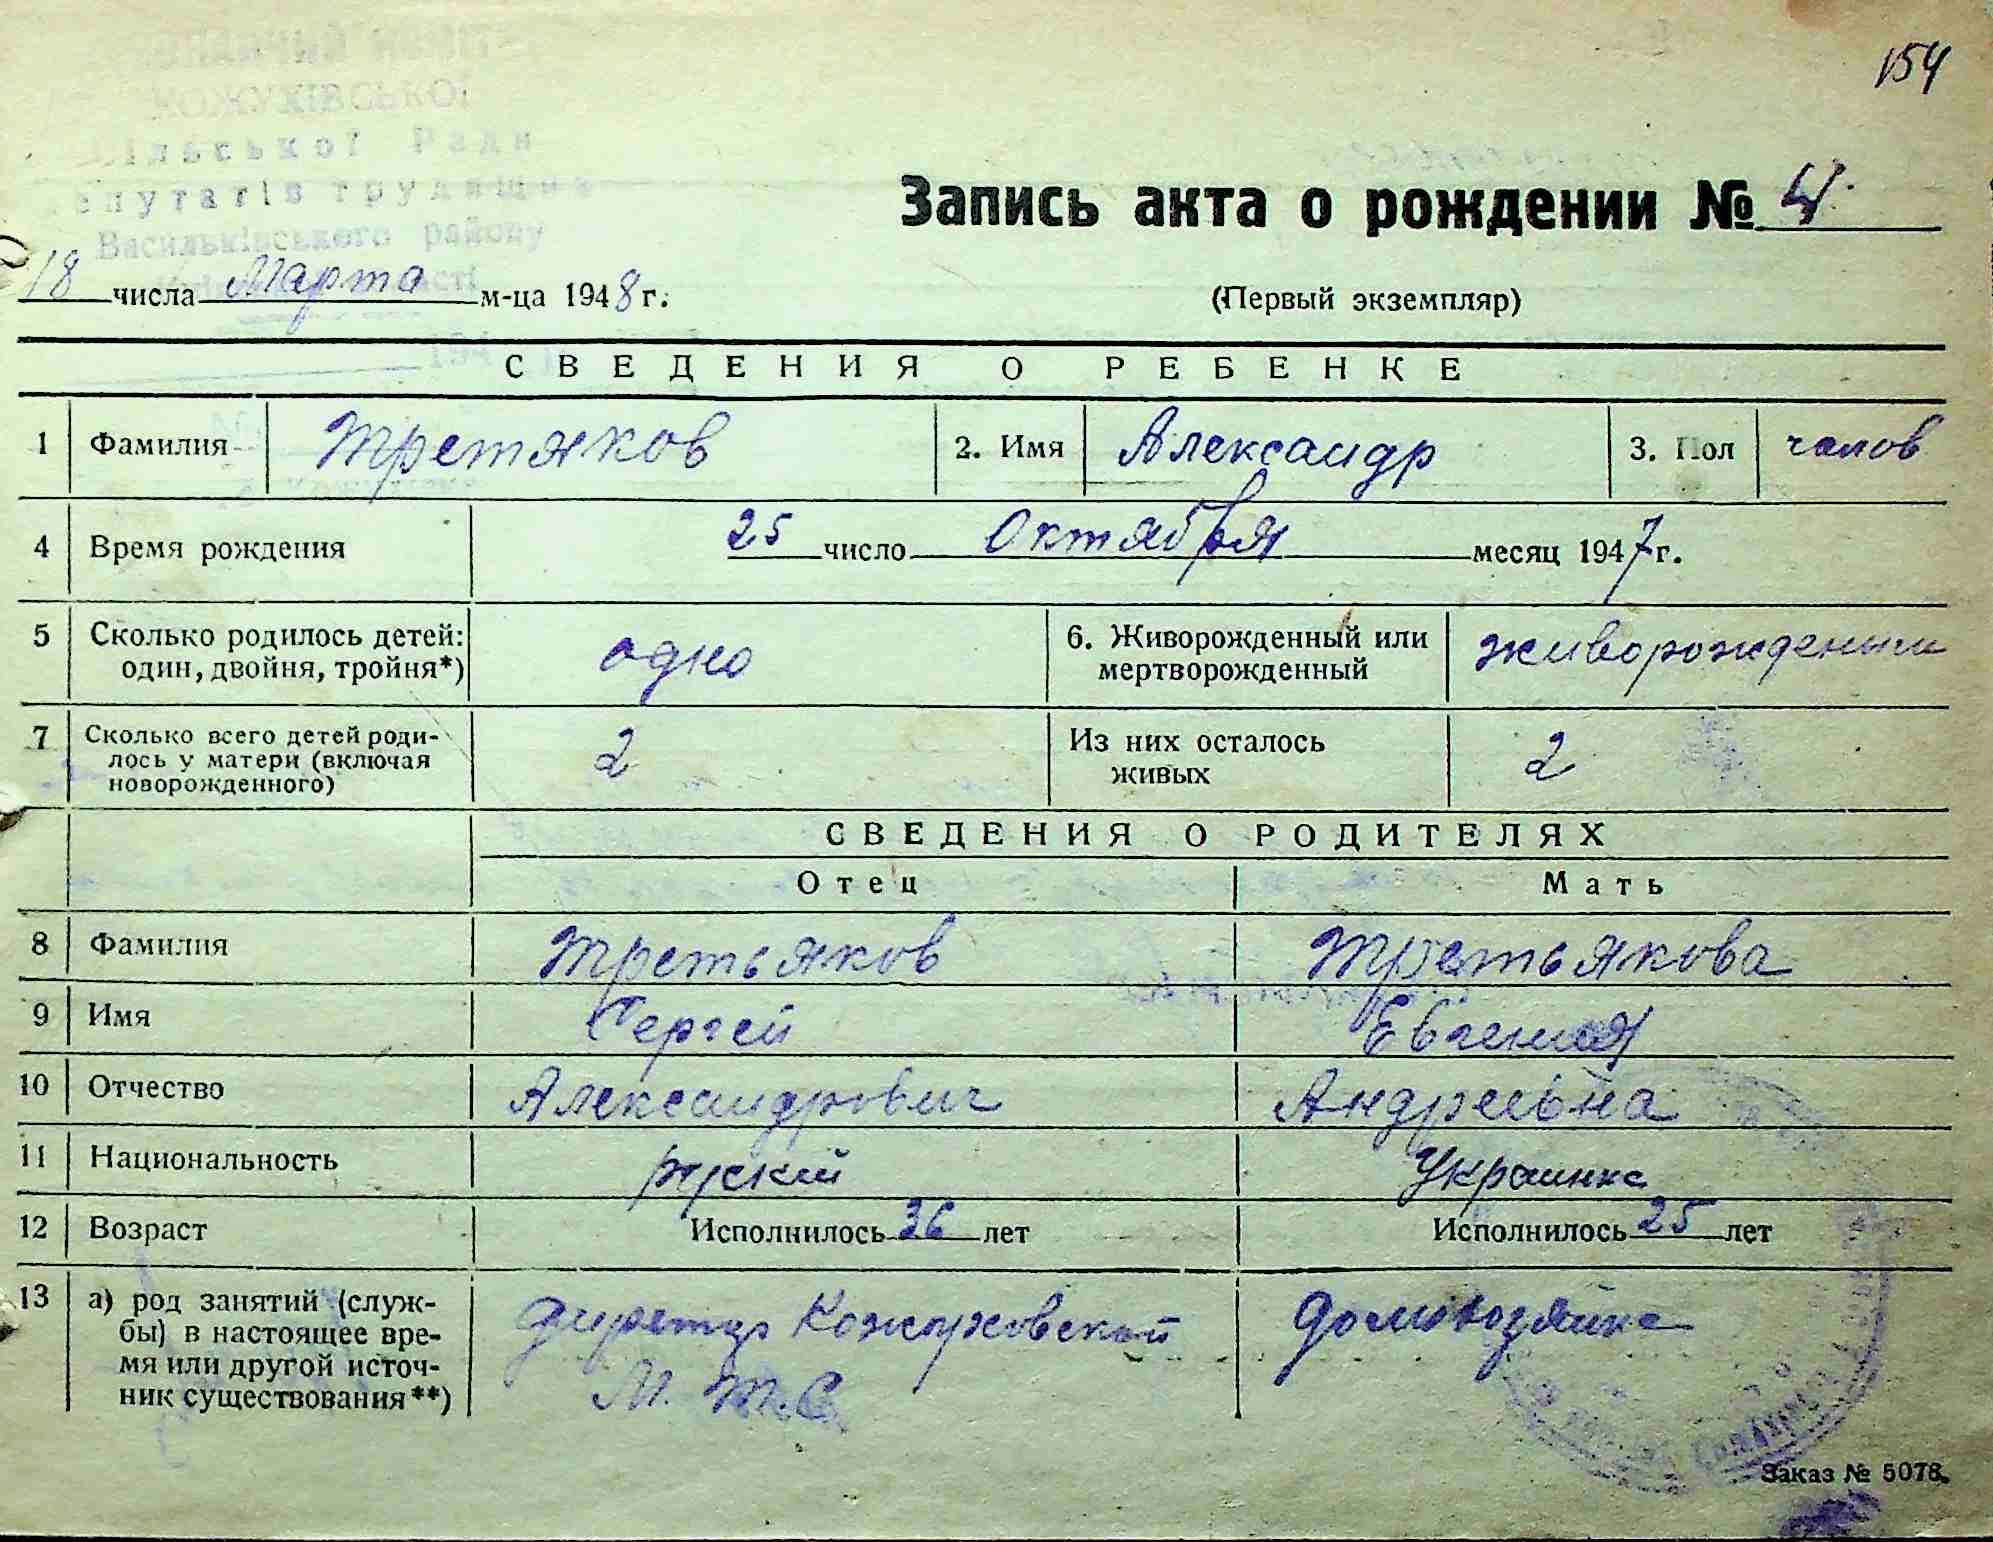 154
КОЖУХІВСЬКОЇ
Ради
Васильківського району
Запись акта о рождении №
18 числа Марта м-ца 1948 г.
(Первый экземпляр)
СВЕДЕНИЯ О РЕБЕНКЕ
1 Фамилия Третяков 2. Имя Александр 3. Пол чолов
4 Время рождения 25 число Октября месяц 1947 г.
5 Сколько родилось детей: один, двойня, тройня*) одно 6. Живорожденный или мертворожденный живорожденый
7 Сколько всего детей роди-
лось у матери (включая
новорожденного) 2 Из них осталось живых 2
СВЕДЕНИЯ О РОДИТЕЛЯХ
Отец Мать
8 Фамилия Третьяков Третьякова
9 Имя Сергей Евгения
10 Отчество Александрович Андреевна
11 Национальность руский Украинка
12 Возраст Исполнилось 36 лет Исполнилось 25 лет
13 а) род занятий (служ-
бы) в настоящее вре-
мя или другой источ-
ник существования**) Кожуховской
М.Т.С. Домохозяйка
Заказ № 5078.